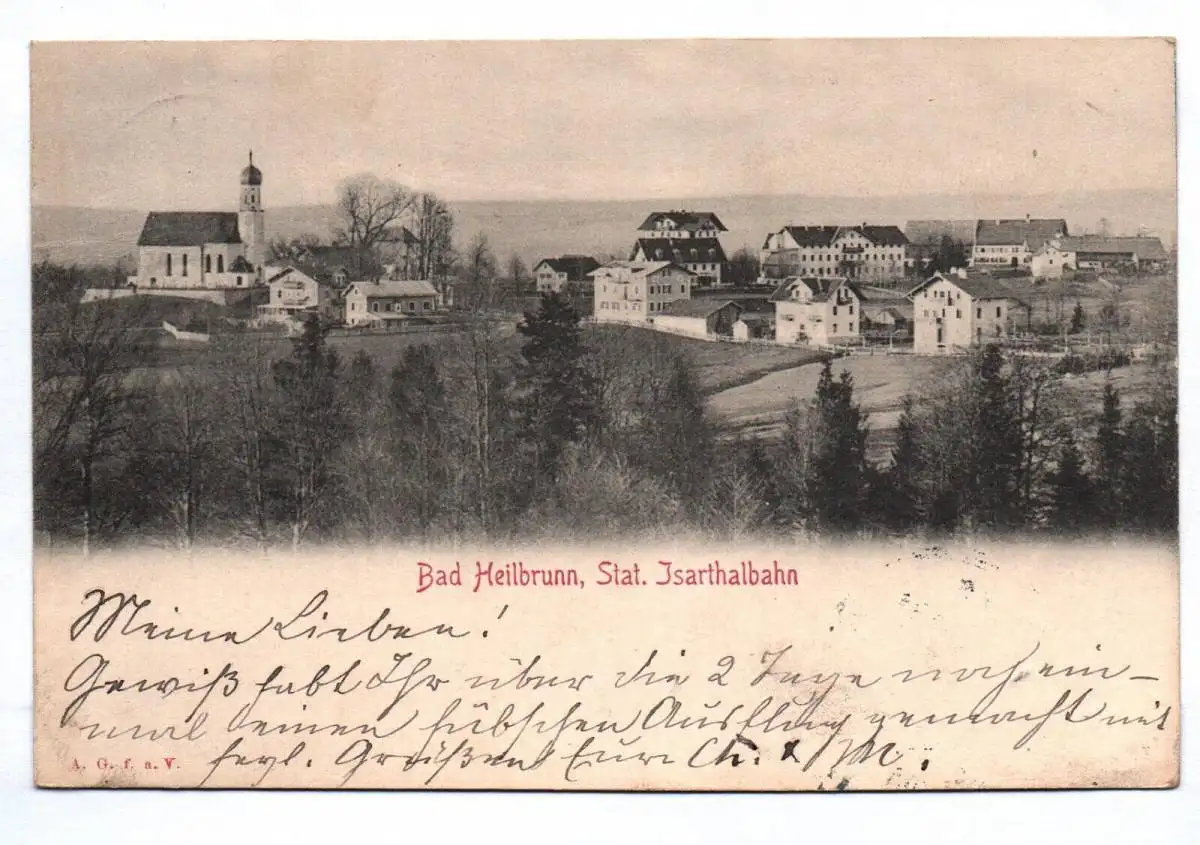 Bad Heilbrunn, Stat. Isarthalbahn
Meine Lieben!
Gewiß habt Ihr über die 2 Tage noch ein-
mal einen hübschen Ausflug gemacht mit
Grüßen Eure Ch.
A. G. f. a. V.